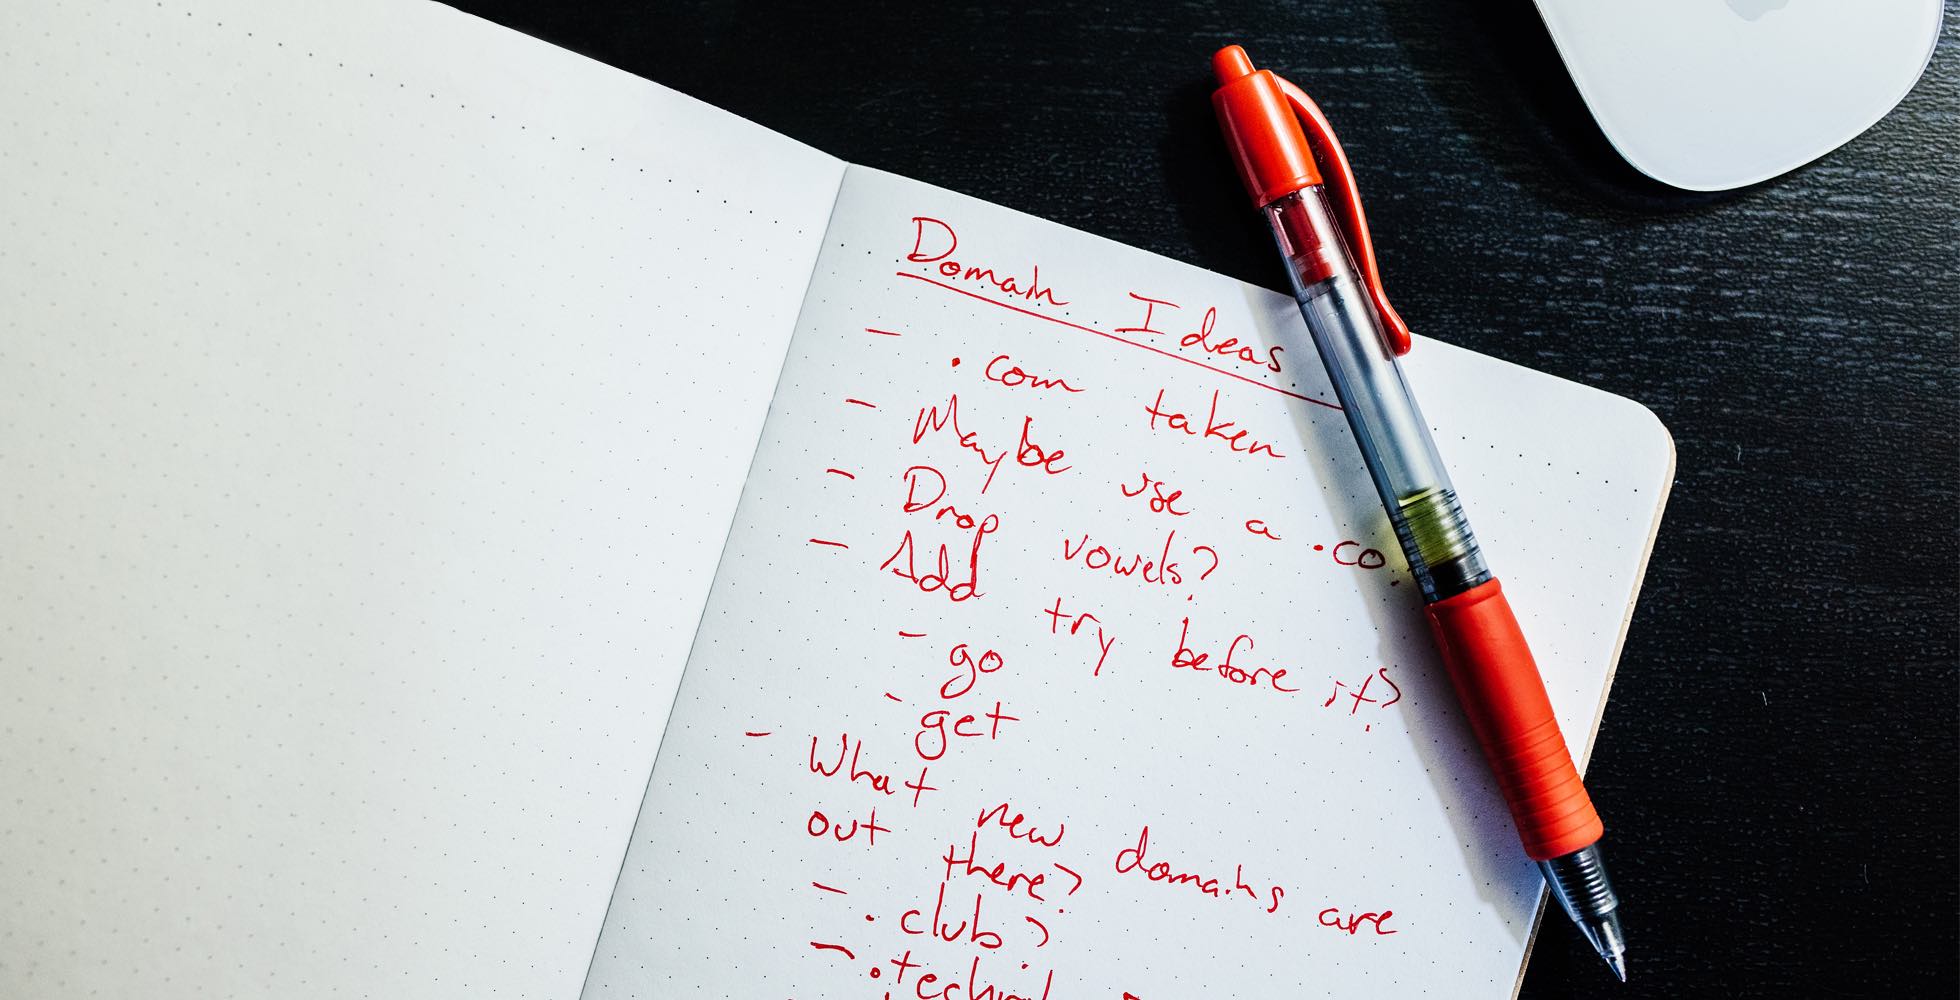 Domain Ideas
- .com taken
- Maybe use a .co
- Drop vowels?
- Add try before it?
- go
- get
- What new domains are
out there?
- .club?